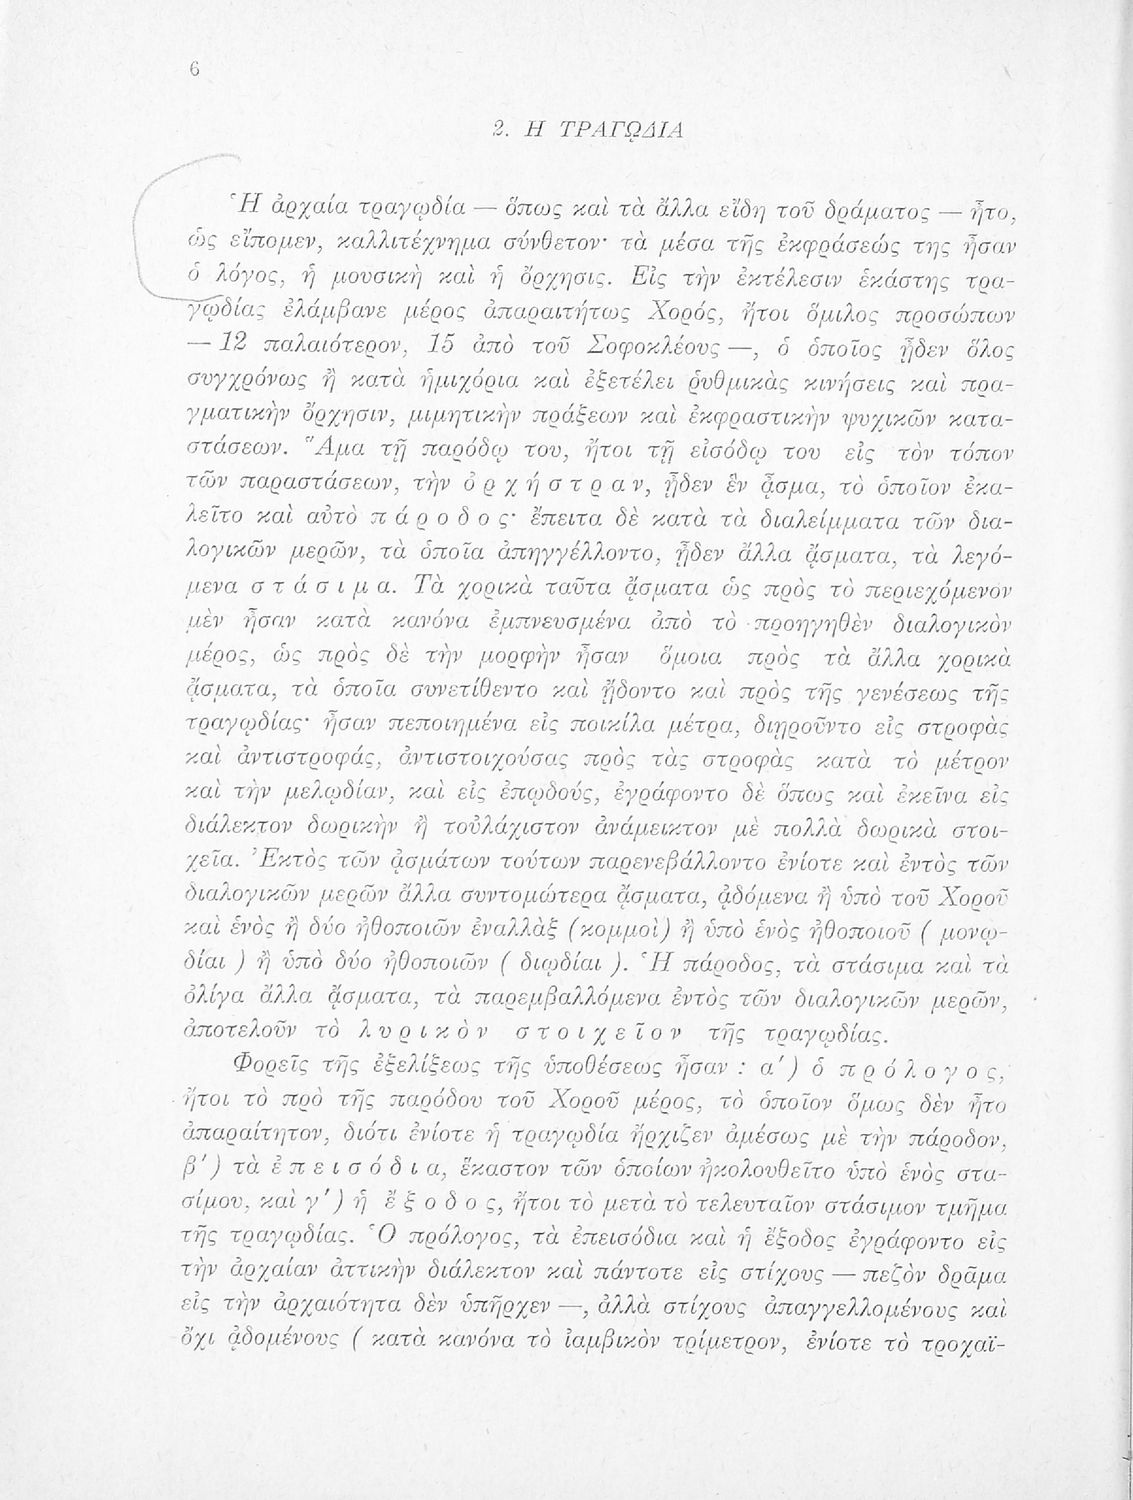 6
2. Η ΤΡΑΓῼΔΙΑ
Ἡ ἀρχαία τραγῳδία — ὅπως καὶ τὰ ἄλλα εἴδη τοῦ δράματος — ἦτο,
ὡς εἴπομεν, καλλιτέχνημα σύνθετον· τὰ μέσα τῆς ἐκφράσεώς της ἦσαν
ὁ λόγος, ἡ μουσικὴ καὶ ἡ ὄρχησις. Εἰς τὴν ἐκτέλεσιν ἑκάστης τρα-
γῳδίας ἐλάμβανε μέρος ἀπαραιτήτως Χορός, ἤτοι ὅμιλος προσώπων
— 12 παλαιότερον, 15 ἀπὸ τοῦ Σοφοκλέους —, ὁ ὁποῖος ᾖδεν ὅλος
συγχρόνως ἢ κατὰ ἡμιχόρια καὶ ἐξετέλει ῥυθμικὰς κινήσεις καὶ πρα-
γματικὴν ὄρχησιν, μιμητικὴν πράξεων καὶ ἐκφραστικὴν ψυχικῶν κατα-
στάσεων. Ἅμα τῇ παρόδῳ του, ἤτοι τῇ εἰσόδῳ του εἰς τὸν τόπον
τῶν παραστάσεων, τὴν ὀ ρ χ ή σ τ ρ α ν, ᾖδεν ἓν ᾆσμα, τὸ ὁποῖον ἐκα-
λεῖτο καὶ αὐτὸ π ά ρ ο δ ο ς· ἔπειτα δὲ κατὰ τὰ διαλείμματα τῶν δια-
λογικῶν μερῶν, τὰ ὁποῖα ἀπηγγέλλοντο, ᾖδεν ἄλλα ᾄσματα, τὰ λεγό-
μενα σ τ ά σ ι μ α. Τὰ χορικὰ ταῦτα ᾄσματα ὡς πρὸς τὸ περιεχόμενον
μὲν ἦσαν κατὰ κανόνα ἐμπνευσμένα ἀπὸ τὸ προηγηθὲν διαλογικὸν
μέρος, ὡς πρὸς δὲ τὴν μορφὴν ἦσαν ὅμοια πρὸς τὰ ἄλλα χορικὰ
ᾄσματα, τὰ ὁποῖα συνετίθεντο καὶ ᾔδοντο καὶ πρὸς τῆς γενέσεως τῆς
τραγῳδίας· ἦσαν πεποιημένα εἰς ποικίλα μέτρα, διῃροῦντο εἰς στροφὰς
καὶ ἀντιστροφάς, ἀντιστοιχούσας πρὸς τὰς στροφὰς κατὰ τὸ μέτρον
καὶ τὴν μελῳδίαν, καὶ εἰς ἐπῳδούς, ἐγράφοντο δὲ ὅπως καὶ ἐκεῖνα εἰς
διάλεκτον δωρικὴν ἢ τοὐλάχιστον ἀνάμεικτον μὲ πολλὰ δωρικὰ στοι-
χεῖα. Ἐκτὸς τῶν ᾀσμάτων τούτων παρενεβάλλοντο ἐνίοτε καὶ ἐντὸς τῶν
διαλογικῶν μερῶν ἄλλα συντομώτερα ᾄσματα, ᾀδόμενα ἢ ὑπὸ τοῦ Χοροῦ
καὶ ἑνὸς ἢ δύο ἠθοποιῶν ἐναλλὰξ (κομμοὶ) ἢ ὑπὸ ἑνὸς ἠθοποιοῦ ( μονῳ-
δίαι ) ἢ ὑπὸ δύο ἠθοποιῶν ( διῳδίαι ). Ἡ πάροδος, τὰ στάσιμα καὶ τὰ
ὀλίγα ἄλλα ᾄσματα, τὰ παρεμβαλλόμενα ἐντὸς τῶν διαλογικῶν μερῶν,
ἀποτελοῦν τὸ λ υ ρ ι κ ὸ ν σ τ ο ι χ ε ῖ ο ν τῆς τραγῳδίας.
Φορεῖς τῆς ἐξελίξεως τῆς ὑποθέσεως ἦσαν : α΄) ὁ π ρ ό λ ο γ ο ς,
ἤτοι τὸ πρὸ τῆς παρόδου τοῦ Χοροῦ μέρος, τὸ ὁποῖον ὅμως δὲν ἦτο
ἀπαραίτητον, διότι ἐνίοτε ἡ τραγῳδία ἤρχιζεν ἀμέσως μὲ τὴν πάροδον,
β΄) τὰ ἐ π ε ι σ ό δ ι α, ἕκαστον τῶν ὁποίων ἠκολουθεῖτο ὑπὸ ἑνὸς στα-
σίμου, καὶ γ΄) ἡ ἔ ξ ο δ ο ς, ἤτοι τὸ μετὰ τὸ τελευταῖον στάσιμον τμῆμα
τῆς τραγῳδίας. Ὁ πρόλογος, τὰ ἐπεισόδια καὶ ἡ ἔξοδος ἐγράφοντο εἰς
τὴν ἀρχαίαν ἀττικὴν διάλεκτον καὶ πάντοτε εἰς στίχους — πεζὸν δρᾶμα
εἰς τὴν ἀρχαιότητα δὲν ὑπῆρχεν —, ἀλλὰ στίχους ἀπαγγελλομένους καὶ
ὄχι ᾀδομένους ( κατὰ κανόνα τὸ ἰαμβικὸν τρίμετρον, ἐνίοτε τὸ τροχαϊ-